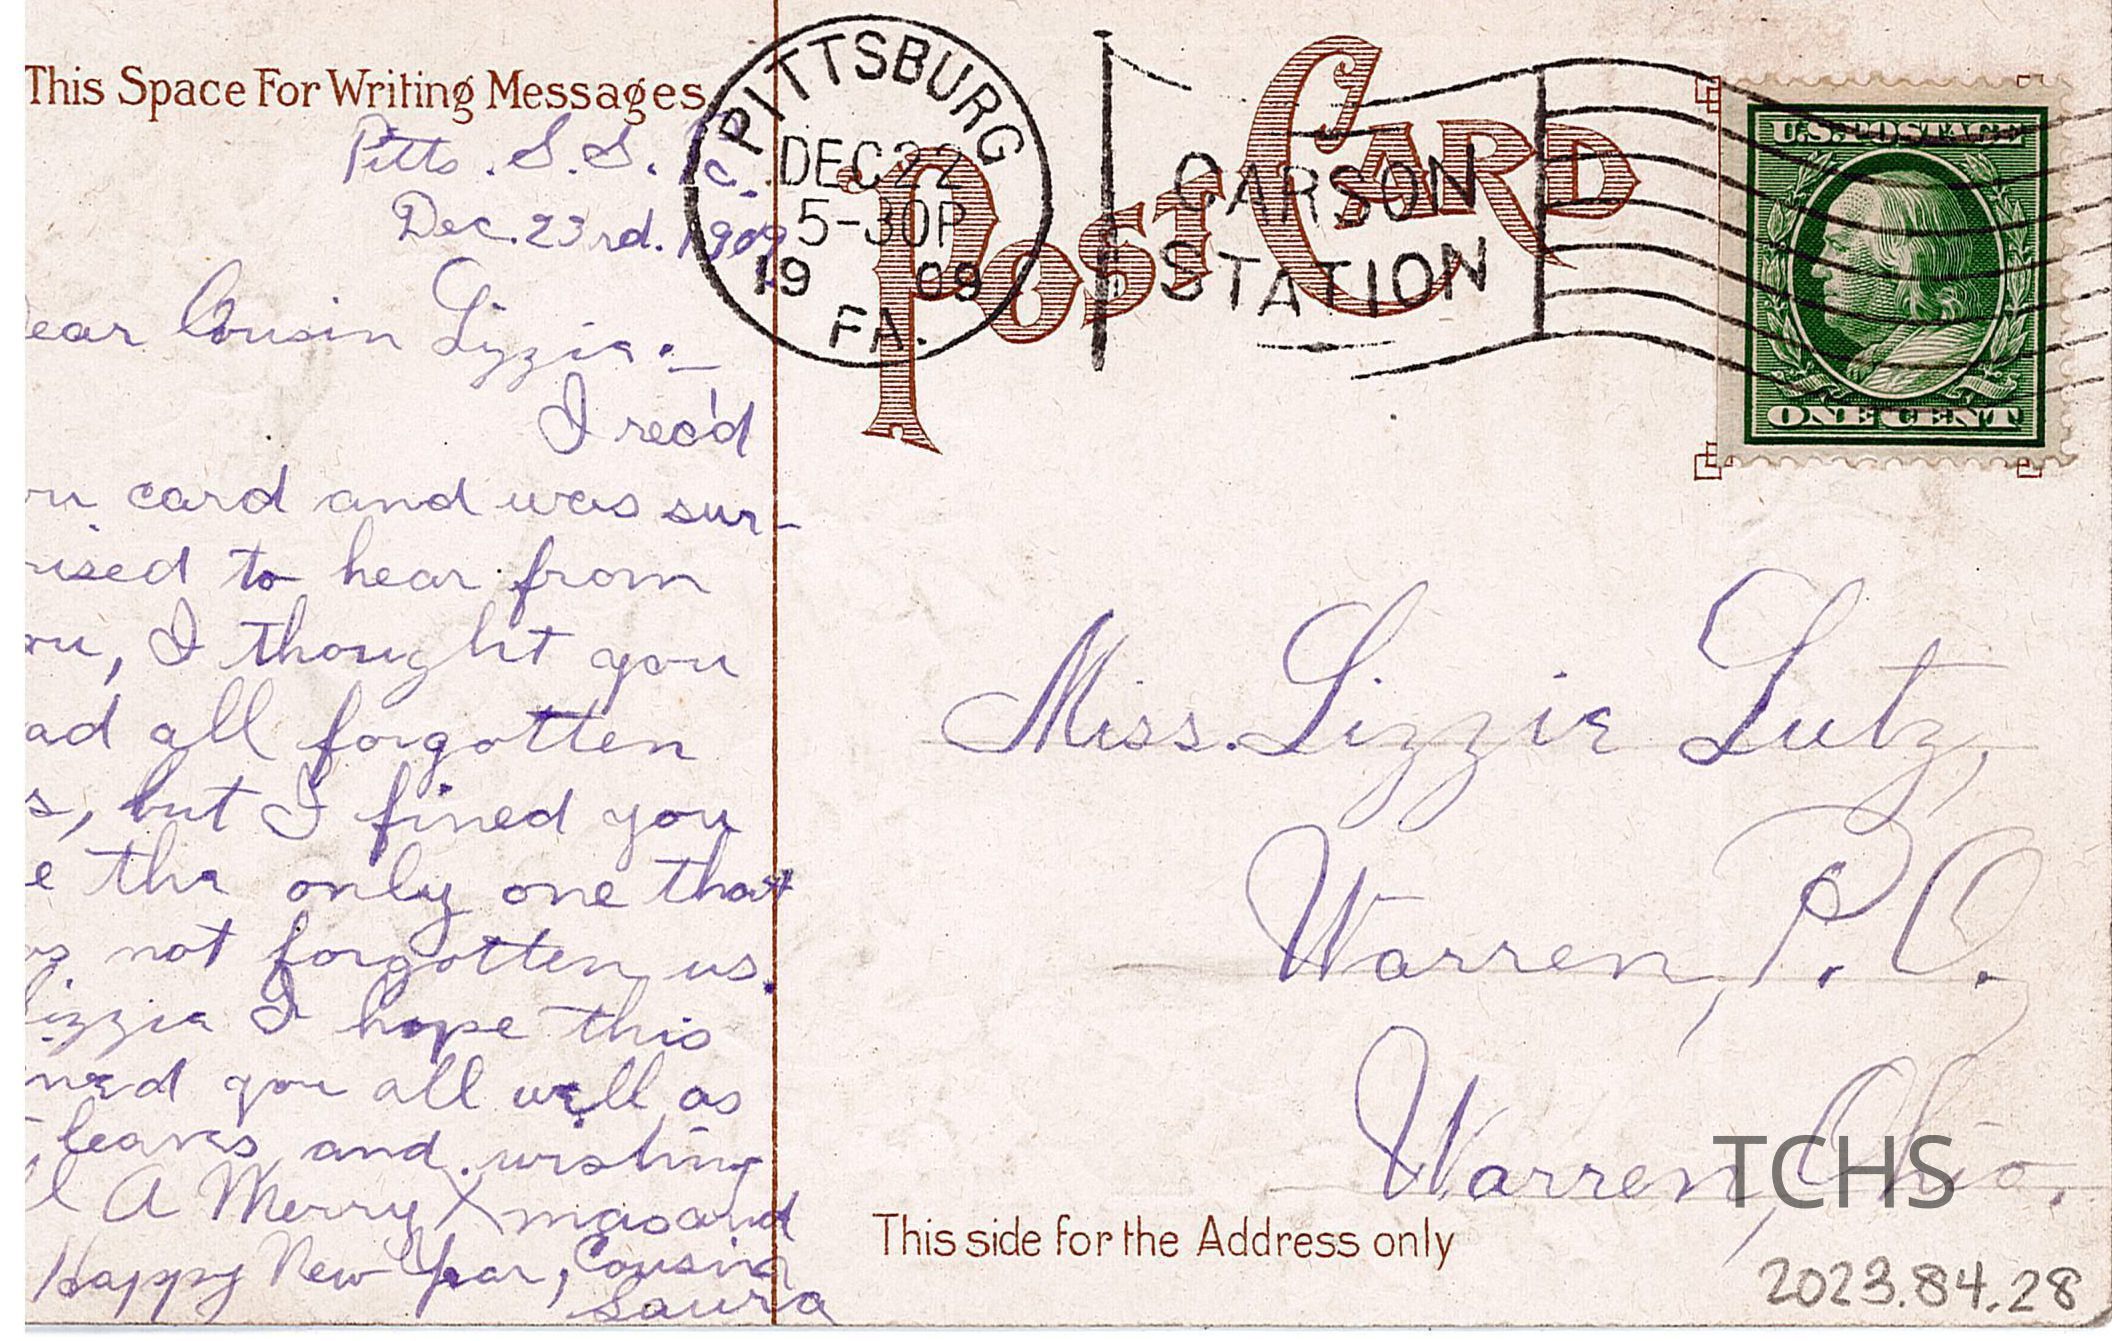 This Space For Writing Messages
Pitts. S.S. Pa.
Dec. 23rd. 1909
ear Cousin Lizzie:—
I rec'd
ou card and was sur-
rised to hear from
ou, I thought you
ad all forgotten
s, but I fined you
e the only one that
as not forgotten us.
Lizzie I hope this
ined you all well as
leaves and wishing
l A Merry Xmas and
Happy New Year, Cousin
Laura
PITTSBURG
DEC 22
5-30P
19 09
PA.
CARSON
STATION
POST CARD
U.S. POSTAGE
ONE CENT
Miss. Lizzie Lutz,
Warren, P.O.
Warren, Ohio.
TCHS
This side for the Address only
2023.84.28